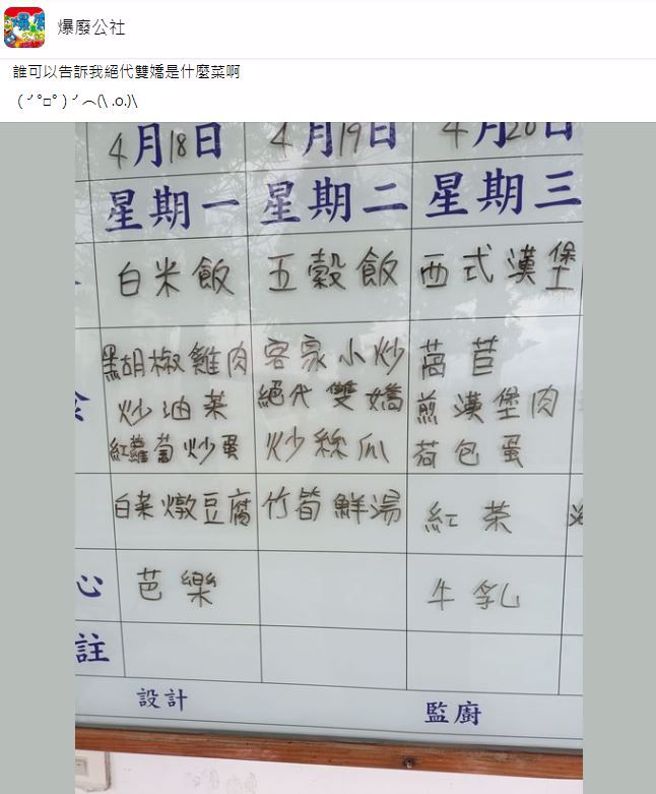 爆廢公社
誰可以告訴我絕代雙嬌是什麼菜啊
4月18日 4月19日 4月20日
星期一 星期二 星期三
白米飯 五穀飯 西式漢堡
黑胡椒雞肉 客家小炒 萵苣
炒油菜 絕代雙嬌 煎漢堡肉
紅蘿蔔炒蛋 炒絲瓜 荷包蛋
白菜燉豆腐 竹筍鮮湯 紅茶
心 芭樂 牛乳
註
設計 監廚